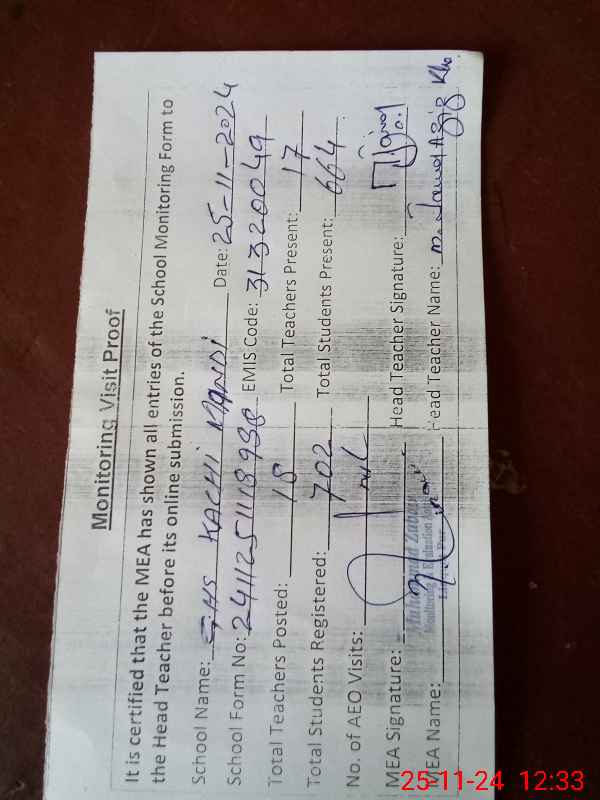 Monitoring Visit Proof
It is certified that the MEA has shown all entries of the School Monitoring Form to
the Head Teacher before its online submission.
School Name: GHS KACHI MANDI Date: 25-11-2024
School Form No: EMIS Code: 31320049
Total Teachers Posted: 18 Total Teachers Present: 17
Total Students Registered: 702 Total Students Present: 664
No. of AEO Visits: nil
MEA Signature: Head Teacher Signature:
Muhammad Zubair
Monitoring & Evaluation
MEA Name: Head Teacher Name:
25-11-24 12:33